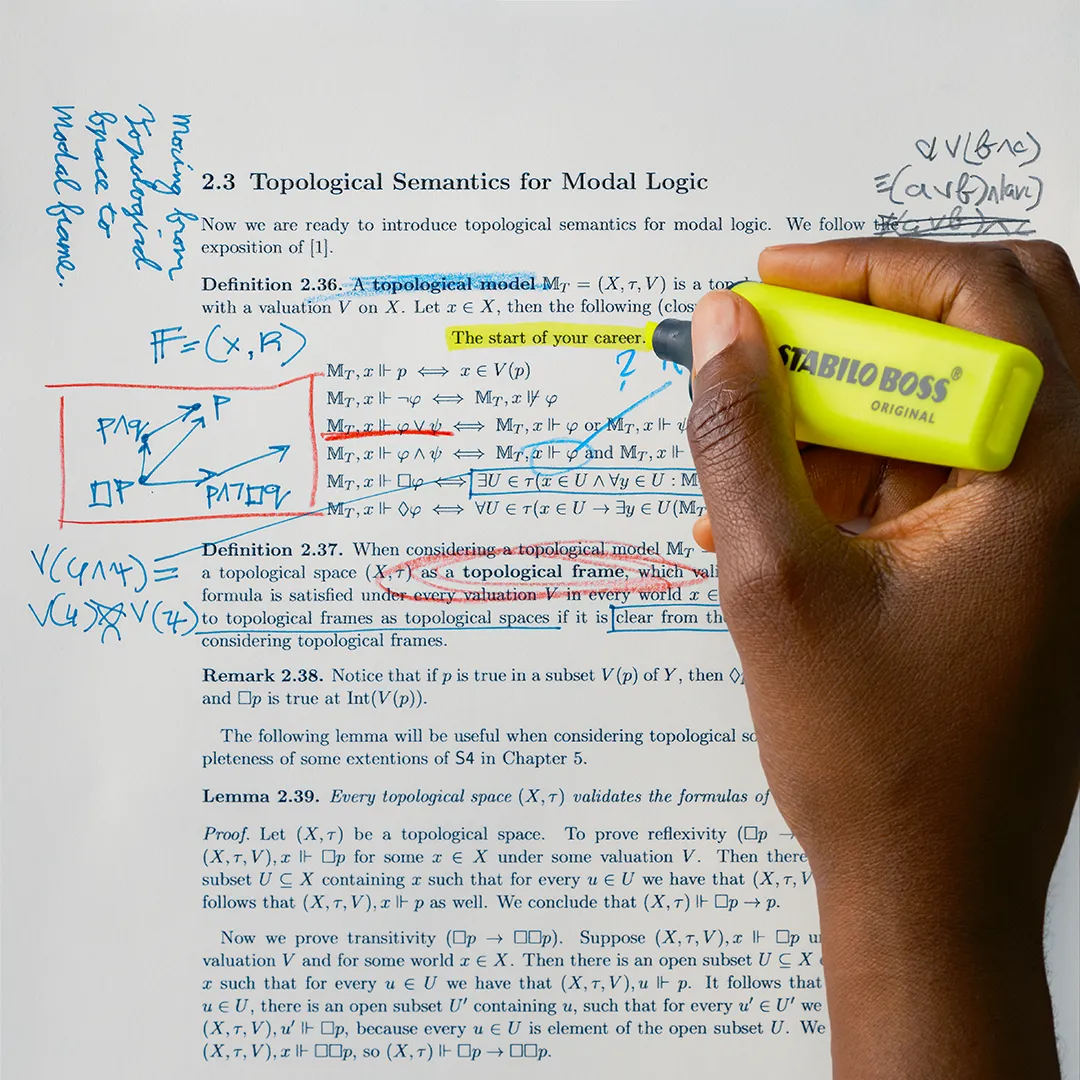 Moving from
Topological
space to
Modal frame.
a∨(b∧c)
≡(a∨b)∧(a∨c)
2.3 Topological Semantics for Modal Logic
Now we are ready to introduce topological semantics for modal logic. We follow the
exposition of [1].
Definition 2.36. A topological model 𝕄_T = (X, τ, V) is a top
with a valuation V on X. Let x ∈ X, then the following (clos
The start of your career.
?
𝔽=(X,R)
𝕄_T, x ⊩ p ⟺ x ∈ V(p)
𝕄_T, x ⊩ ¬φ ⟺ 𝕄_T, x ⊮ φ
𝕄_T, x ⊩ φ ∨ ψ ⟺ 𝕄_T, x ⊩ φ or 𝕄_T, x ⊩ ψ
𝕄_T, x ⊩ φ ∧ ψ ⟺ 𝕄_T, x ⊩ φ and 𝕄_T, x ⊩
𝕄_T, x ⊩ □φ ⟺ ∃U ∈ τ(x ∈ U ∧ ∀y ∈ U : 𝕄
𝕄_T, x ⊩ ◊φ ⟺ ∀U ∈ τ(x ∈ U → ∃y ∈ U(𝕄_T
P
P∧q
□P
P∧¬□q
STABILO BOSS®
ORIGINAL
Definition 2.37. When considering a topological model 𝕄_T =
a topological space (X, τ) as a topological frame, which vali
formula is satisfied under every valuation V in every world x ∈
to topological frames as topological spaces if it is clear from th
considering topological frames.
V(φ∧ψ)≡
V(φ) V(ψ)
Remark 2.38. Notice that if p is true in a subset V(p) of Y, then ◊
and □p is true at Int(V(p)).
The following lemma will be useful when considering topological so
pleteness of some extentions of S4 in Chapter 5.
Lemma 2.39. Every topological space (X, τ) validates the formulas of
Proof. Let (X, τ) be a topological space. To prove reflexivity (□p →
(X, τ, V), x ⊩ □p for some x ∈ X under some valuation V. Then there
subset U ⊆ X containing x such that for every u ∈ U we have that (X, τ, V
follows that (X, τ, V), x ⊩ p as well. We conclude that (X, τ) ⊩ □p → p.
Now we prove transitivity (□p → □□p). Suppose (X, τ, V), x ⊩ □p u
valuation V and for some world x ∈ X. Then there is an open subset U ⊆ X
x such that for every u ∈ U we have that (X, τ, V), u ⊩ p. It follows that
u ∈ U, there is an open subset U′ containing u, such that for every u′ ∈ U′ we
(X, τ, V), u′ ⊩ □p, because every u ∈ U is element of the open subset U. We
(X, τ, V), x ⊩ □□p, so (X, τ) ⊩ □p → □□p.